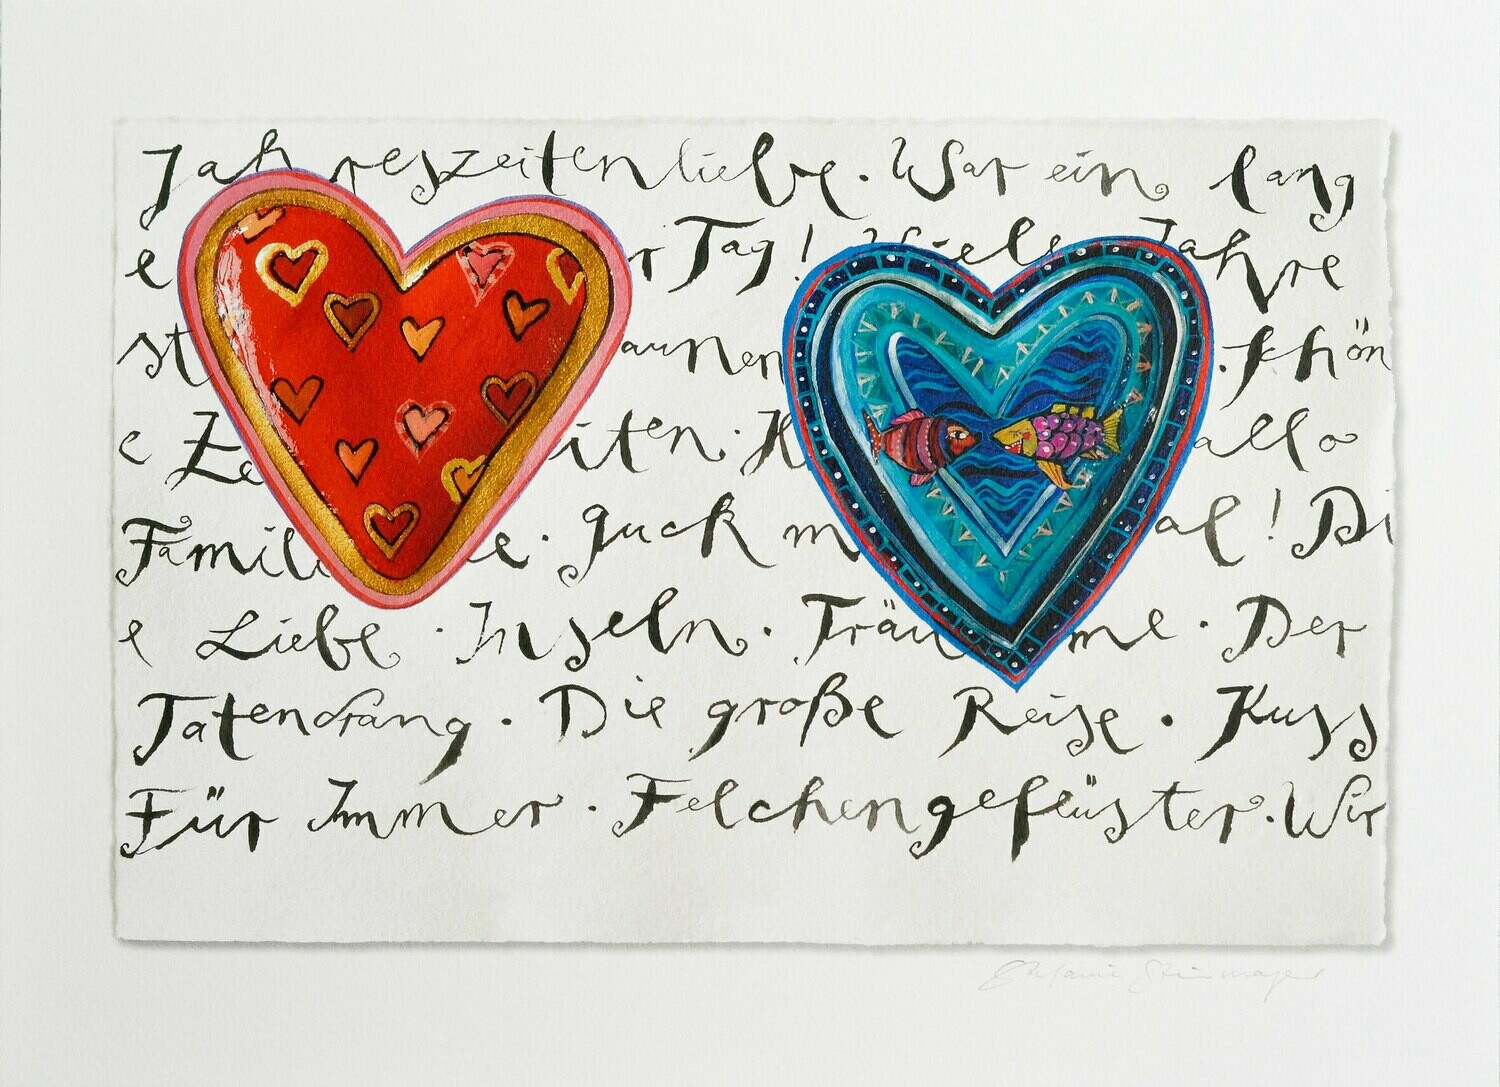 Jahreszeitenliebe. War ein lang
e r Tag! Viele Jahre
st aunen . Schön
e Ze iten. H allo
Famili e. Guck m al! Di
e Liebe. Inseln. Träu me. Der
Tatendrang. Die große Reise. Kuss
Für Immer. Felchengeflüster. Wir
Stefanie Steinmayer